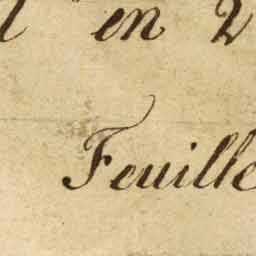 en 2
Feuille